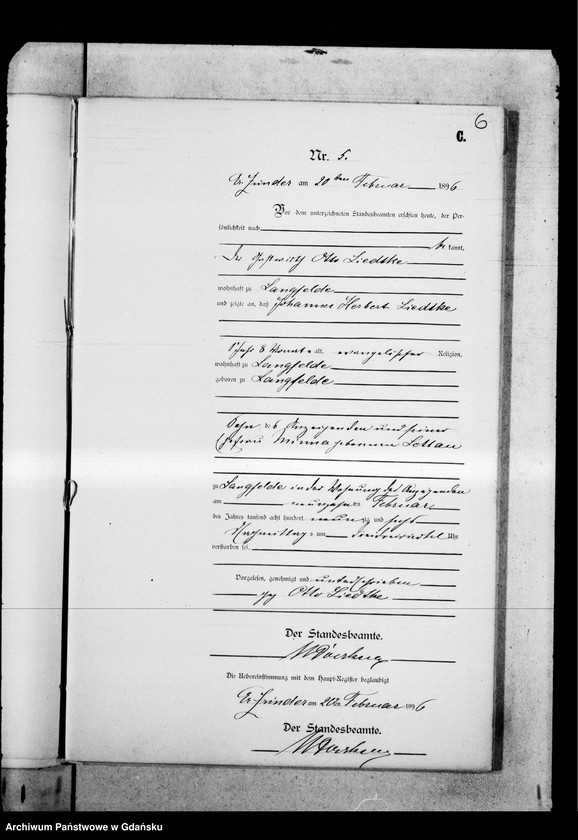 6
C.
Nr. 5.
Gr. Zünder am 20ten Februar 1896
Vor dem unterzeichneten Standesbeamten erschien heute, der Per-
sönlichkeit nach
be kannt,
Der Gastwirth Otto Liedtke
wohnhaft zu Langfelde
und zeigte an, daß Johannes Herbert Liedtke
1 Jahr 8 Monate alt, evangelischer Religion,
wohnhaft zu Langfelde
geboren zu Langfelde
Sohn des Anzeigenden und seiner
Ehefrau Minna geborenen Lettau
zu Langfelde in der Wohnung des Anzeigenden
am neunzehnten Februar
des Jahres tausend acht hundert neunzig und sechs
Nachmittags um dreiviertel Uhr
verstorben sei.
Vorgelesen, genehmigt und unterschrieben
gez Otto Liedtke
Der Standesbeamte.
Die Uebereinstimmung mit dem Haupt-Register beglaubigt
Gr. Zünder am 20ten Februar 1896
Der Standesbeamte.
Archiwum Państwowe w Gdańsku